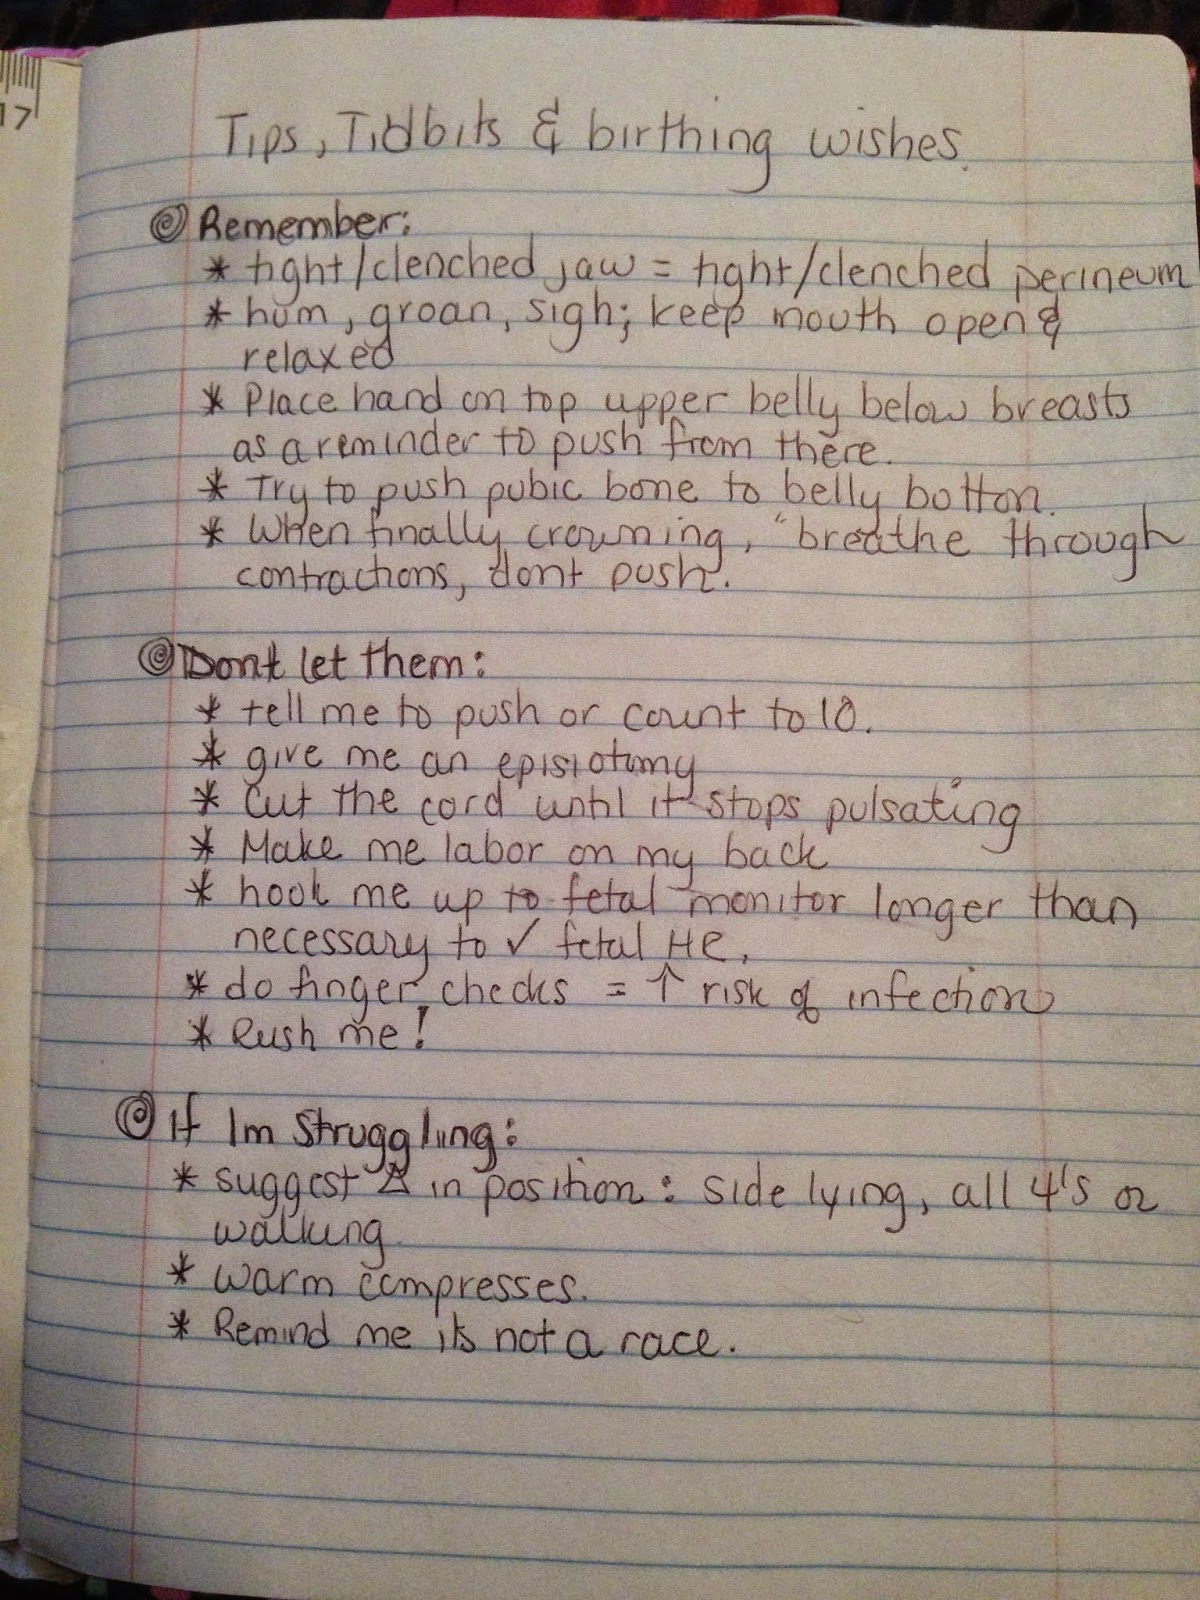 17
Tips, Tidbits & birthing wishes.
Remember:
* tight/clenched jaw = tight/clenched perineum
* hum, groan, sigh; keep mouth open &
relaxed
* Place hand on top upper belly below breasts
as a reminder to push from there.
* Try to push pubic bone to belly button.
* When finally crowning, "breathe through
contractions, dont push.
Dont let them:
* tell me to push or count to 10.
* give me an episiotomy
* Cut the cord until it stops pulsating
* Make me labor on my back
* hook me up to fetal monitor longer than
necessary to ✓ fetal HR.
* do finger checks = ↑ risk of infection
* Rush me!
If Im Struggling:
* suggest Δ in position: side lying, all 4's or
walking
* warm compresses.
* Remind me its not a race.